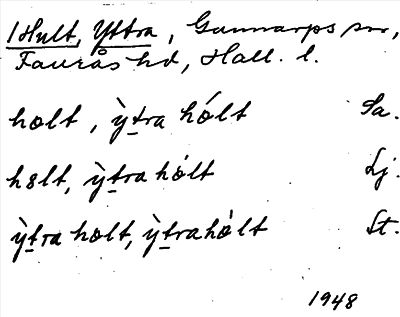 1 Hult, Yttra, Gunnarps sn,
Faurås hd, Hall. l.
hɷlt, ỳtra hɷ́lt Sa.
hɷlt, ỳtra hɷ́lt Lj.
ỳtra hɷlt, ỳtrahɷ́lt St.
1948